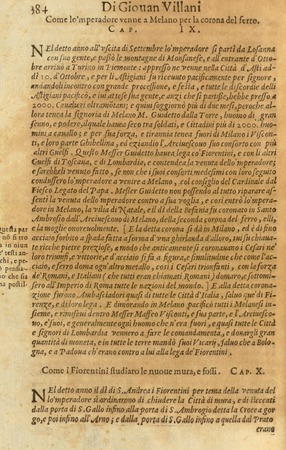 384 Di Giouan Villani
Come lo'mperadore venne a Melano per la corona del ferro.
CAP. IX.
NEl detto anno all'vscita di Settembre lo'mperadore si partì da Losanna
con suo gente, e passò le montagne di Monsanese, e all'entrante d'Otto
bre arriuò a Turino in Piemonte: appresso ne venne nella Città d'Asti adì
10. d'Ottobre, e per li Astigiani fu riceuuto pacificamente per signore
andandoli incontro con grande processione, e festa, e tutte le discordie delli
Astigiani pacificò, e iui attese sua gente, e anzi che si partisse, hebbe presso a
2000. Caualieri oltramontani; e quiui soggiornò più di due mesi, peroche al
lora tenea la signoria di Melano M. Guidetto dalla Torre, huomo di gran
senno, e podere,
mini a cauallo; e per sua forza, e tirannia tenea fuori di Milano i Viscon
ti, e loro parte Ghibellina, ed eziandio l'Arciuescouo suo consorto con più
altri Guelfi. Questo Messer Guidetto hauea lega co' Fiorentini, e con li altri
Guelfi di Toscana, e di Lombardia, e contendea la venuta dello'mperadore;
e sarebbeli venuto fatto, se non che i suoi consorti medesimi con loro seguito
condussero lo'mperadore a venire a Melano, col consiglio del Cardinale dal
Fiesco Legato del Papa. Messer Guidetto non possendo al tutto riparare as
sentì la venuta dello'mperadore contro a sua voglia, e così entrò lo'mpera
dore in Melano, la vilia di Natale, e il dì della Befania fu coronato in Santo
Ambrosio dall'Arciuescouo di Melano, della seconda corona del ferro, elli,
e la moglie onoreuolmente, [ E la detta corona si dà in Melano, ed è di fino
acciaro forbito a spada fatta a forma d'vna ghirlanda d'alloro, iui sì chiaua
te ricche pietre preziose, a modo che anticamente si coronauano i Cesari ne'
loro triomfi, e vittorie, e d'acciaio si fà a figura, e similitudine che come l'ac-
ciaio, e ferro doma ogn'altro metallo, così i Cesari trionfanti, con la forza
de' Romani, e Italiani (che tutti eran chiamati Romani) domaro, e sottomis-
sero all'Imperio di Roma tutte le nazioni del mondo. ] E alla detta corona-
zione furono Ambasciadori quasi di tutte le Città d'Italia, saluo que di Fi-
renze, e di loro lega. E dimorando in Melano pacificò tutti i Melanesi in-
sieme, e rimiseui dentro Messer Maffeo Visconti, e sua parte, e l'Arciuesco-
uo, e suoi, e generalmente ogni huomo che n'era fuori, e quasi tutte le Città
e signori di Lombardia vennero a fare le comandamenta, e donargli gran
quantità di moneta, e in tutte le terre mandò suoi Vicarij, saluo che a Bolo-
gna, e a Padoua ch'erano contro a lui alla lega de' Fiorentini.
Come i Fiorentini studiaro le nuoue mura, e fossi. CAP. X.
NEl detto anno il dì di S. Andrea i Fiorentini per tema della venuta del
lo'mperadore si ordinarono di chiudere la Città di mura, e di steccati
dalla porta di S. Gallo infino alla porta di S. Ambrogio detta la Croce a gor-
go, e poi infino all'Arno; e dalla porta di S. Gallo infino a quella dal Prato
erano